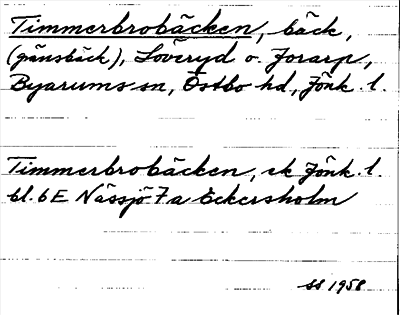 Timmerbrobäcken, bäck,
(gänsbäck), Löveryd o. Jorarp,
Byarums sn, Östbo hd, Jönk. l.
Timmerbrobäcken, ek Jönk. l.
bl. 6E Nässjö 7a Eckersholm
SS 1958